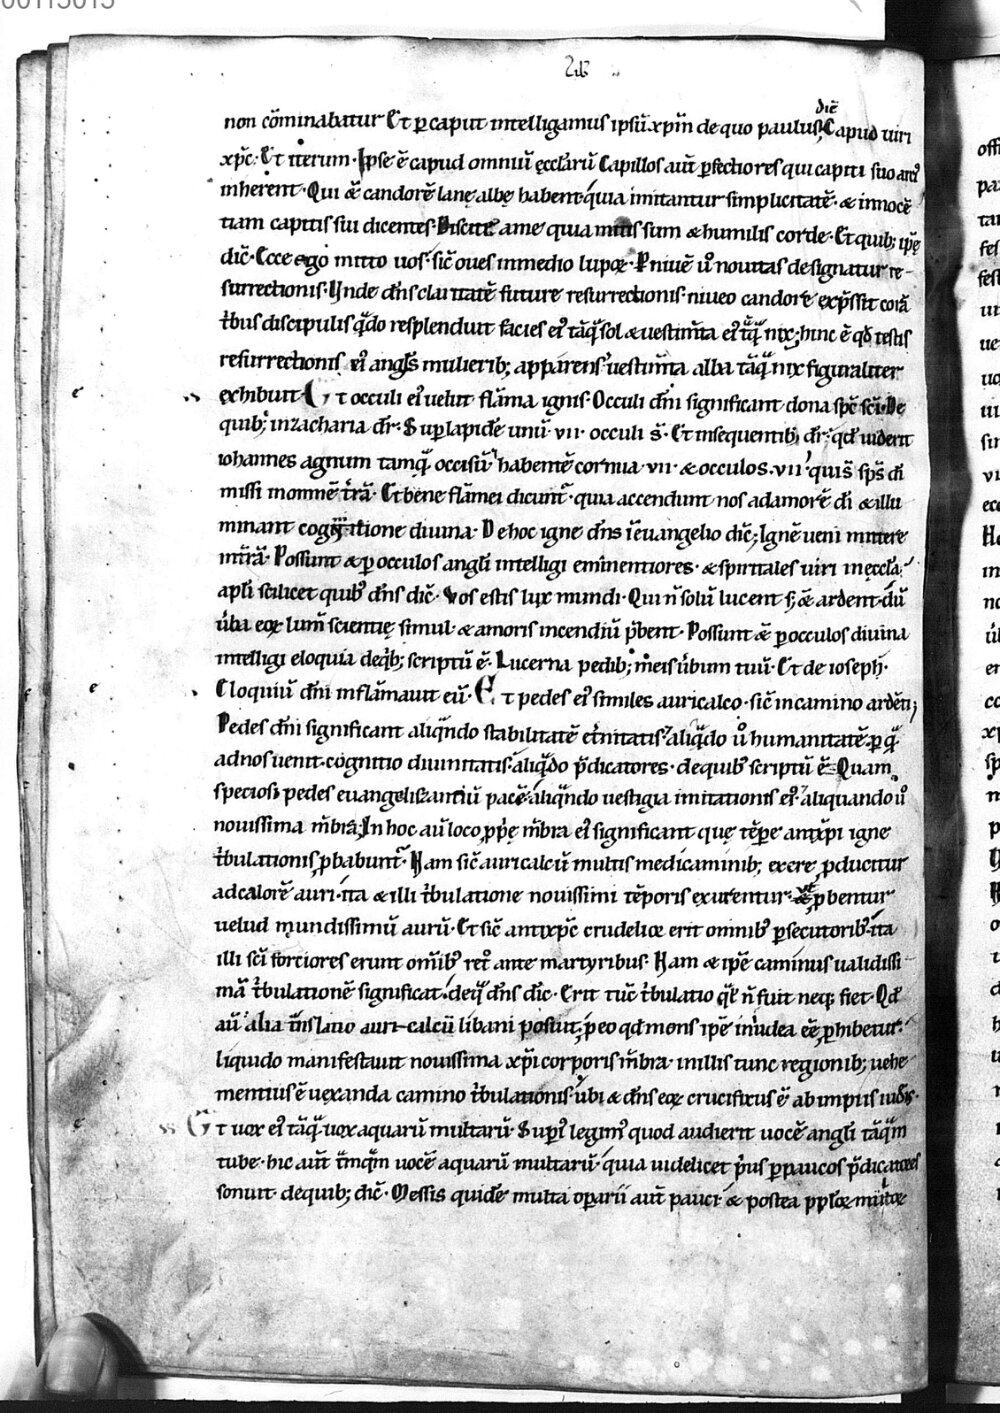 non cōminabatur Et ꝑ caput intelligamus ipsū xp̄m de quo paulus dic̄ Capud uiri
xp̄c. Et iterum. Ipse ē capud omniū ęccl̄arū Capillos aut̄ ꝑfectiores qui capiti suo
inherent. Qui &̄ candorē lanę albę habent. quia imitantur simplicitatē. & innocē
tiam capitis sui dicentes. Discite a me quia mitis sum & humilis corde. Et quib; ipsę
dic̄. Ecce ego mitto uos. sic̄ oues in medio lupoꝝ. P niuē ū nouitas designatur re-
surrectionis. Unde dn̄s claritatē future resurrectionis. niueo candore exp̄ssit corā
t̄bus discipulis qn̄do resplenduit facies ei' tāq̄ sol & uestim̄ta ei' tāq̄ nix; hinc ē qd̄ testis
resurrectionis ei' angl̄s mulierib; apparens. uestim̄ta alba tāq̄ nix figuraliter
exhibuit Et occuli ei' uelut flāma ignis. Occuli dn̄i significant dona sp̄c sc̄i. De
quib; in zacharia dr̄. Suꝑ lapidē unū. vii. occuli s̄. Et insequentib; dr̄. qd̄ uiderit
iohannes agnum tamq̄ occisū habentē cornua. vii. & occulos. vii. qui s̄ sp̄s di
missi in omnē t̄rā. Et bene flāmei dicunt̄. quia accendunt nos ad amorē di & illu
minant cognitione diuina. De hoc igne dn̄s ī euangelio dic̄; Ignē ueni mittere
in t̄rā. Possunt & ꝑ occulos angl̄i intelligi eminentiores. & spiritales uiri in ęccl̄a.
apl̄i scilicet quib' dn̄s dic̄. Vos estis lux mundi. Qui n̄ solū lucent s; &̄ ardent. dū
ūba eoꝝ lum̄ scientię simul. & amoris incendiū p̄bent. Possunt &̄ ꝑ occulos diuina
intelligi eloquia de qb; scriptū ē. Lucerna pedib; meis ūbum tuū. Et de ioseph.
Eloquiū dn̄i inflāmauit eū. Et pedes ei' similes auricalco. sic̄ in camino ardēti;
Pedes dn̄i significant aliqn̄do stabilitatē et̄nitatis. aliqn̄do ū humanitatē. ꝑ q̄
ad nos uenit. cognitio diuinitatis. aliqn̄do p̄dicatores. de quib' scriptū ē. Quam
speciosi pedes euangelizantiū pacē. aliqn̄do uestigia imitationis ei'. aliquando ū
nouissima m̄bra. In hoc aū loco ꝓp̄ę m̄bra ei' significant quę tēpe antixp̄i igne
t̄bulationis ꝓbabunt̄. Nam sic̄ auricalcū multis medicaminib; ex ere ꝓducitur
ad calorē auri. ita & illi t̄bulatione nouissimi tēporis exurentur. ut ꝓbentur
uelud mundissimū aurū. Et sic̄ antixp̄c crudelior erit omnib' ꝑsecutorib'. ita
illi sc̄i forciores erunt omīb' ret̄ ante martyribus. Nam & ipsē caminus ualidissi-
mā t̄bulationē significat. de q̄ dn̄s dic̄. Erit tūc t̄bulatio q̄l n̄ fuit neq; fiet. Qd̄
aū alia t̄nslatio auri-calcū libani posuit. ꝑ eo qd̄ mons ipsē in iudea eē ꝑhibetur.
liquido manifestauit nouissima xp̄i corporis m̄bra. in illis tunc regionib; uehe-
mentius ē uexanda camino t̄bulationis. ubi & dn̄s eoꝝ crucifixus ē ab impiis iudeis.
Et uox ei' tāq̄ uox aquarū multarū. Superi' legim' quod audierit uocē angl̄i tāq̄m
tube. hic aut̄ t̄mq̄m uocē aquarū multarū. quia uidelicet p̄us ꝑ paucos p̄dicatores
sonuit. de quib; dic̄. Messis quidē multa oꝑarii aut̄ pauci. & postea